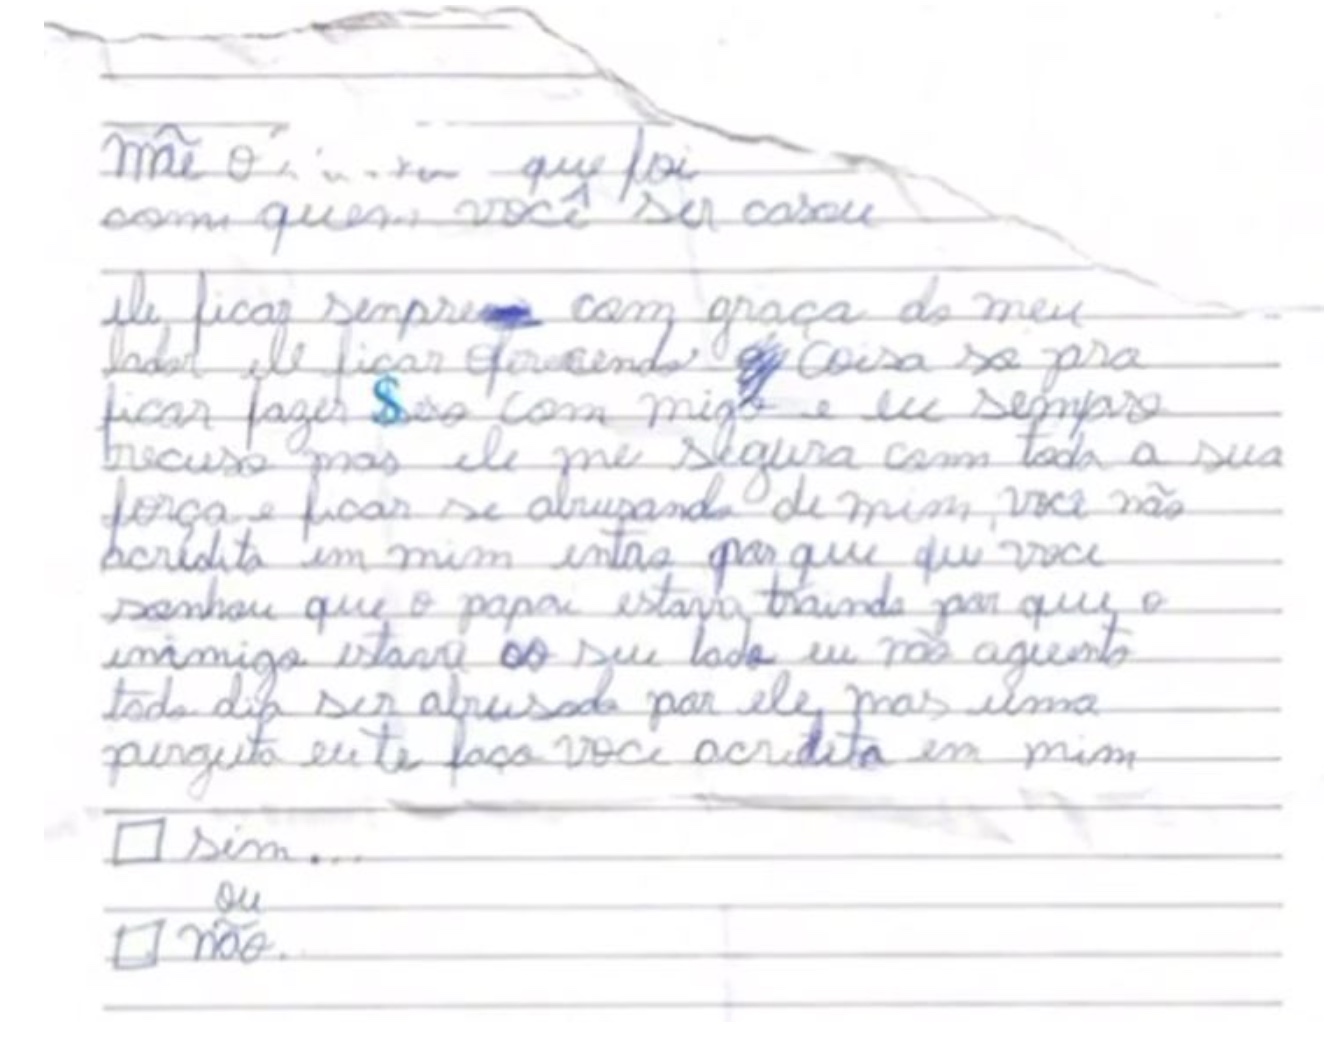 Mãe o que foi
com quem você ser casou
ele ficar senpre com graça do meu
lador ele ficar oferecendo coisa so pra
ficar fazer Sexo com migo e eu sempre
recuso mas ele me segura com toda a sua
força e ficar se abusando de mim, você não
acredita em mim entao por que que voce
sonhou que o papai estava traindo por que o
inimigo estava ao seu lado eu não aguento
todo dia ser abusada por ele, mas uma
perguta eu te faço voce acredita em mim
☐ sim...
ou
☐ não.